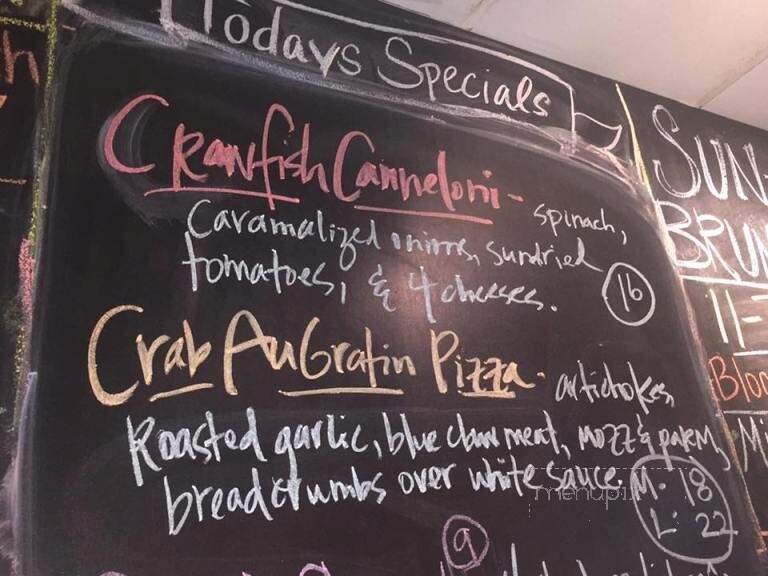 Todays Specials
Crawfish Canneloni - spinach,
Caramalized onions, sundried
tomatoes, & 4 cheeses. 16
Crab AuGratin Pizza - artichokes,
Roasted garlic, blue claw meat, mozz & parm,
breadcrumbs over white sauce M. 18
L. 22
9
SUN
BRUN
11-
Bloo
Mi
menupix